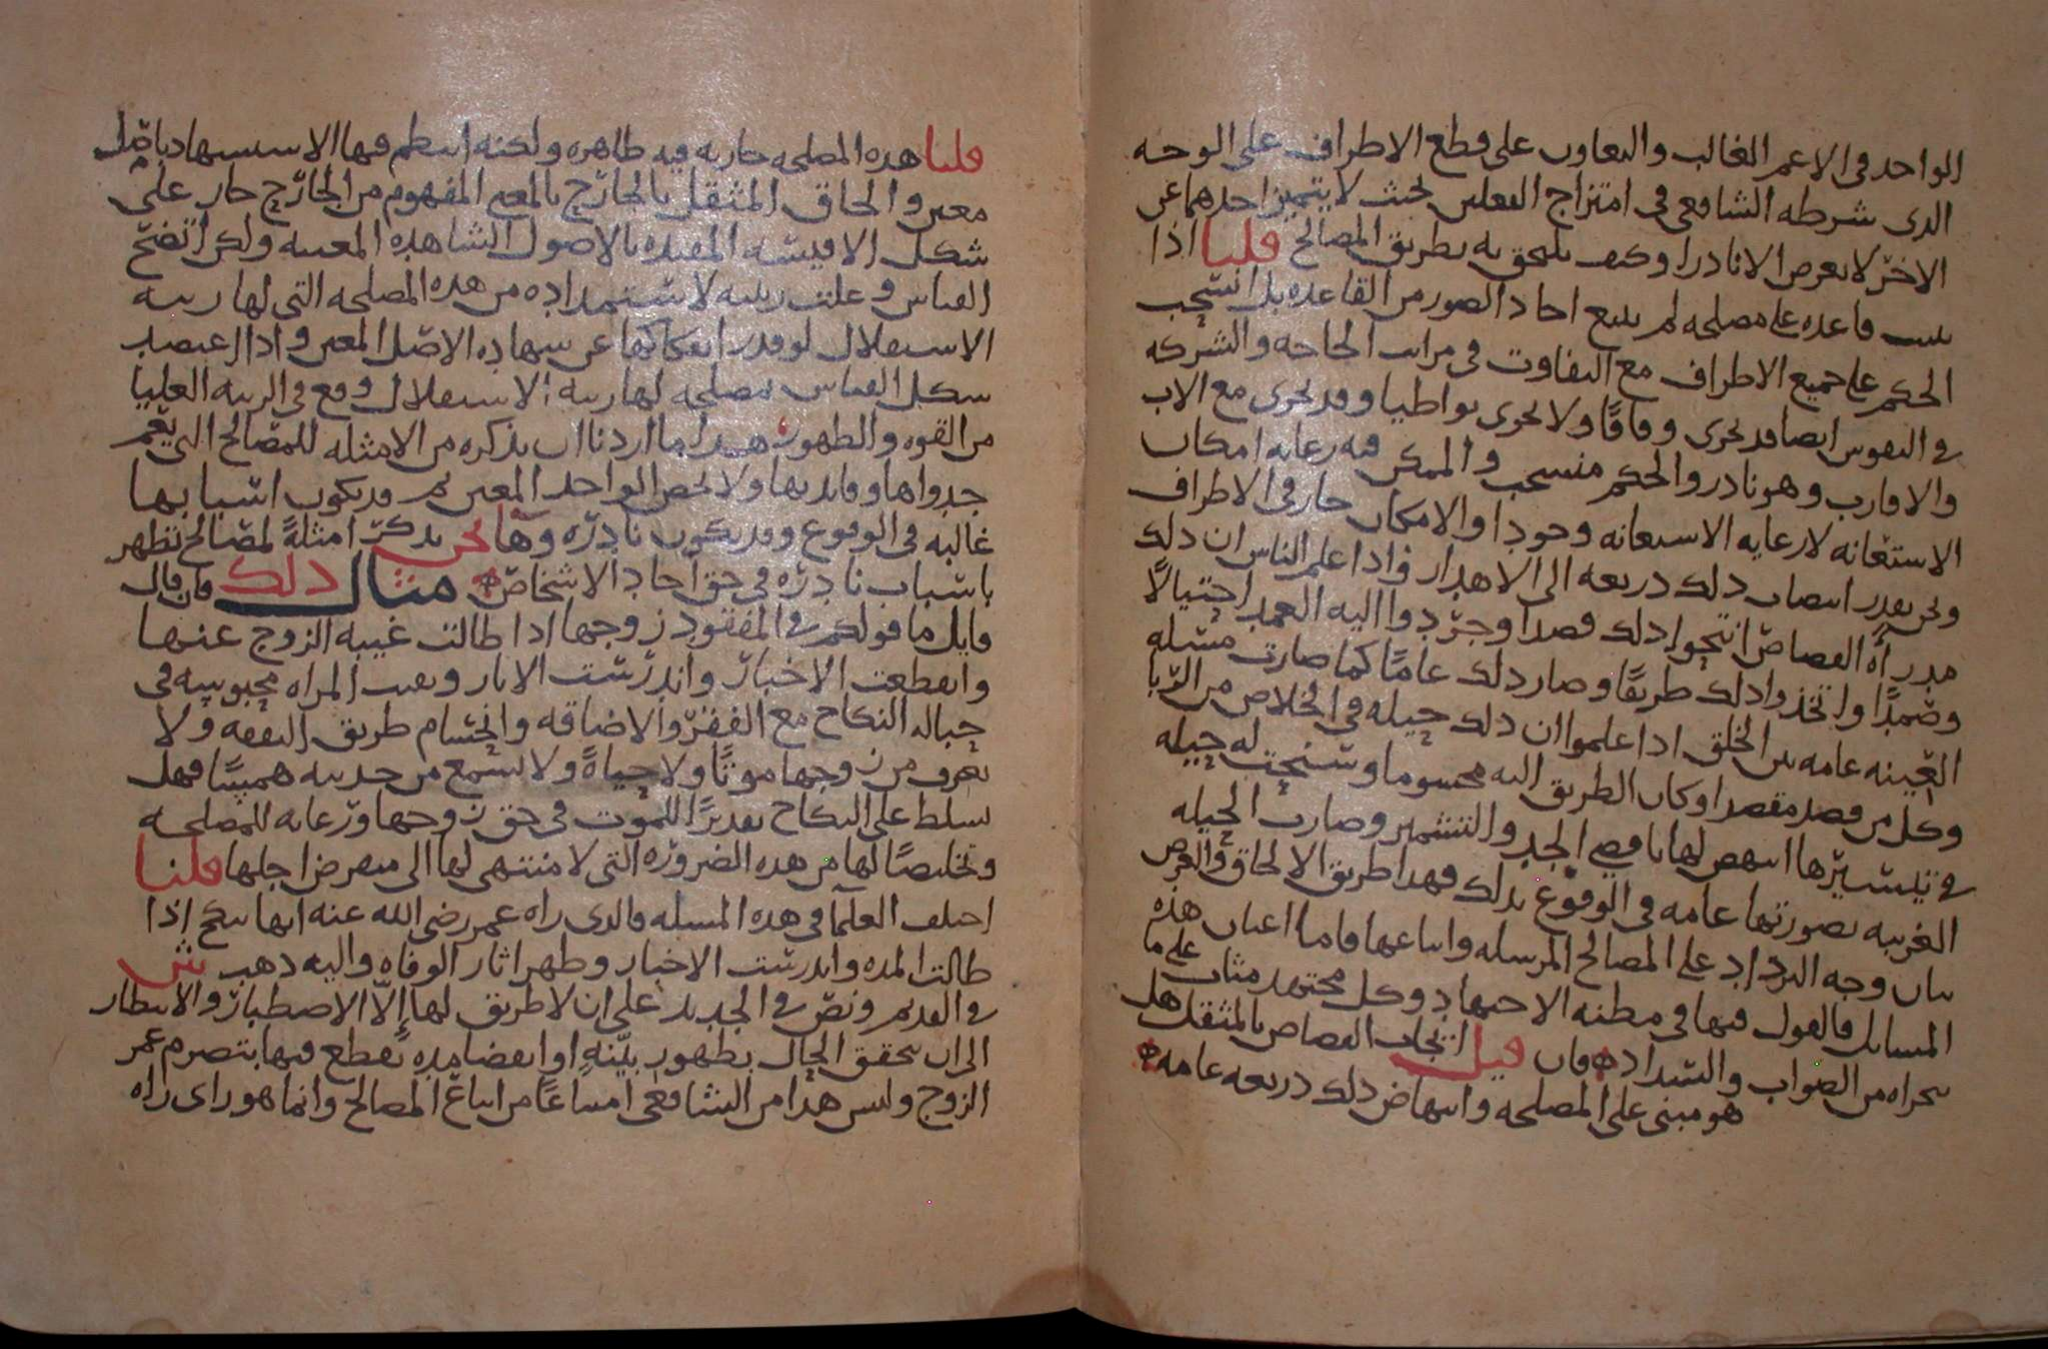 الواحد في الاعم الغالب والتعاون على قطع الاطراف على الوجه
الذى شرطه الشافعى في امتزاج الفعلين بحيث لا يتميز احدهما عن
الاخر لا يعرض الا نادرا وكيف يلحق به بطريق المصالح قلنا اذا
ثبت قاعده على مصلحه لم يتبع احاد الصور من القاعده بل انسحب
الحكم على جميع الاطراف مع التفاوت في مراتب الحاجه والشركه
في النفوس ايضا قد تجرى وفاقا ولا تجرى تواطيا وقد تجرى مع الاب
والاقارب وهو نادر والحكم منسحب والممكن فيه رعايه امكان
الاستعانه لا رعايه الاستعانه وجودا والامكان جار في الاطراف
ونحن نقدر انتصاب ذلك ذريعه الى الاهدار فاذا علم الناس ان ذلك
مدرأه القصاص انتحوا ذلك قصدا وجردوا اليه العمد احتيالا
وصمدا واتخذوا ذلك طريقا وصار ذلك عاما كما صارت مسئله
العينه عامه بين الخلق اذا علموا ان ذلك حيله في الخلاص من الربا
وكل من قصد مقصدا وكان الطريق اليه محسوما وسنحت له حيله
في تيسيرها انتهض لها باقصى الجد والتشمير وصارت الحيله
الغريبه بصورتها عامه في الوقوع بذلك فهذا طريق الالحاق والغرض
بيان وجه الترداد على المصالح المرسله واتباعها فاما اعيان هذه
المسايل فالقول فيها في مظنه الاجتهاد وكل مجتهد مثاب على ما
يتحراه من الصواب والسداد فان قيل ايجاب القصاص بالمثقل هل
هو مبنى على المصلحه وانتهاض ذلك ذريعه عامه
قلنا هذه المصلحه جاريه فيه ظاهره ولكنه انتظم فيها الاستشهاد باصل
معين والحاق المثقل بالجارح بالمعنى المفهوم من الجارح جار على
شكل الاقيسه المقيده بالاصول الشاهده المعينه ولكن اتضح
القياس وعلت رتبته لاستمداده من هذه المصلحه التى لها رتبه
الاستقلال لو قدر انفكاكها عن شهاده الاصل المعين واذا اعتضد
شكل القياس بمصلحه لها رتبه الاستقلال وقع في الرتبه العليا
من القوه والظهور هذا ما اردنا ان نذكره من الامثله للمصالح التى يعم
جدواها وفايدتها ولا تخص الواحد المعين ثم قد يكون اسبابها
غالبه في الوقوع وقد يكون نادره وها نحن نذكر امثله لمصالح تظهر
باسباب نادره في حق احاد الاشخاص مثال ذلك فان قال
قايل ما قولكم في المفقود زوجها اذا طالت غيبه الزوج عنها
وانقطعت الاخبار واندرست الاثار وبقيت المراه محبوسه في
حباله النكاح مع الفقر والاضاقه وانحسام طريق النفقه ولا
تعرف من زوجها موتا ولا حياة ولا تسمع من حديثه هميسا فهل
تسلط على النكاح تقديرا للموت في حق زوجها ورعايه للمصلحه
وتخليصا لها من هذه الضروره التى لا منتهى لها الى منقرض اجلها قلنا
اختلف العلما في هذه المسله فالذى راه عمر رضى الله عنه انها تنكح اذا
طالت المده واندرست الاخبار وظهر اثار الوفاه واليه ذهب ش
في القديم ونص في الجديد على ان لا طريق لها إلا الاصطبار والانتظار
الى ان يتحقق الحال بظهور بينة او انقضا مده نقطع فيها بتصرم عمر
الزوج وليس هذا من الشافعى امتناعا من اتباع المصالح وانما هو راى راه